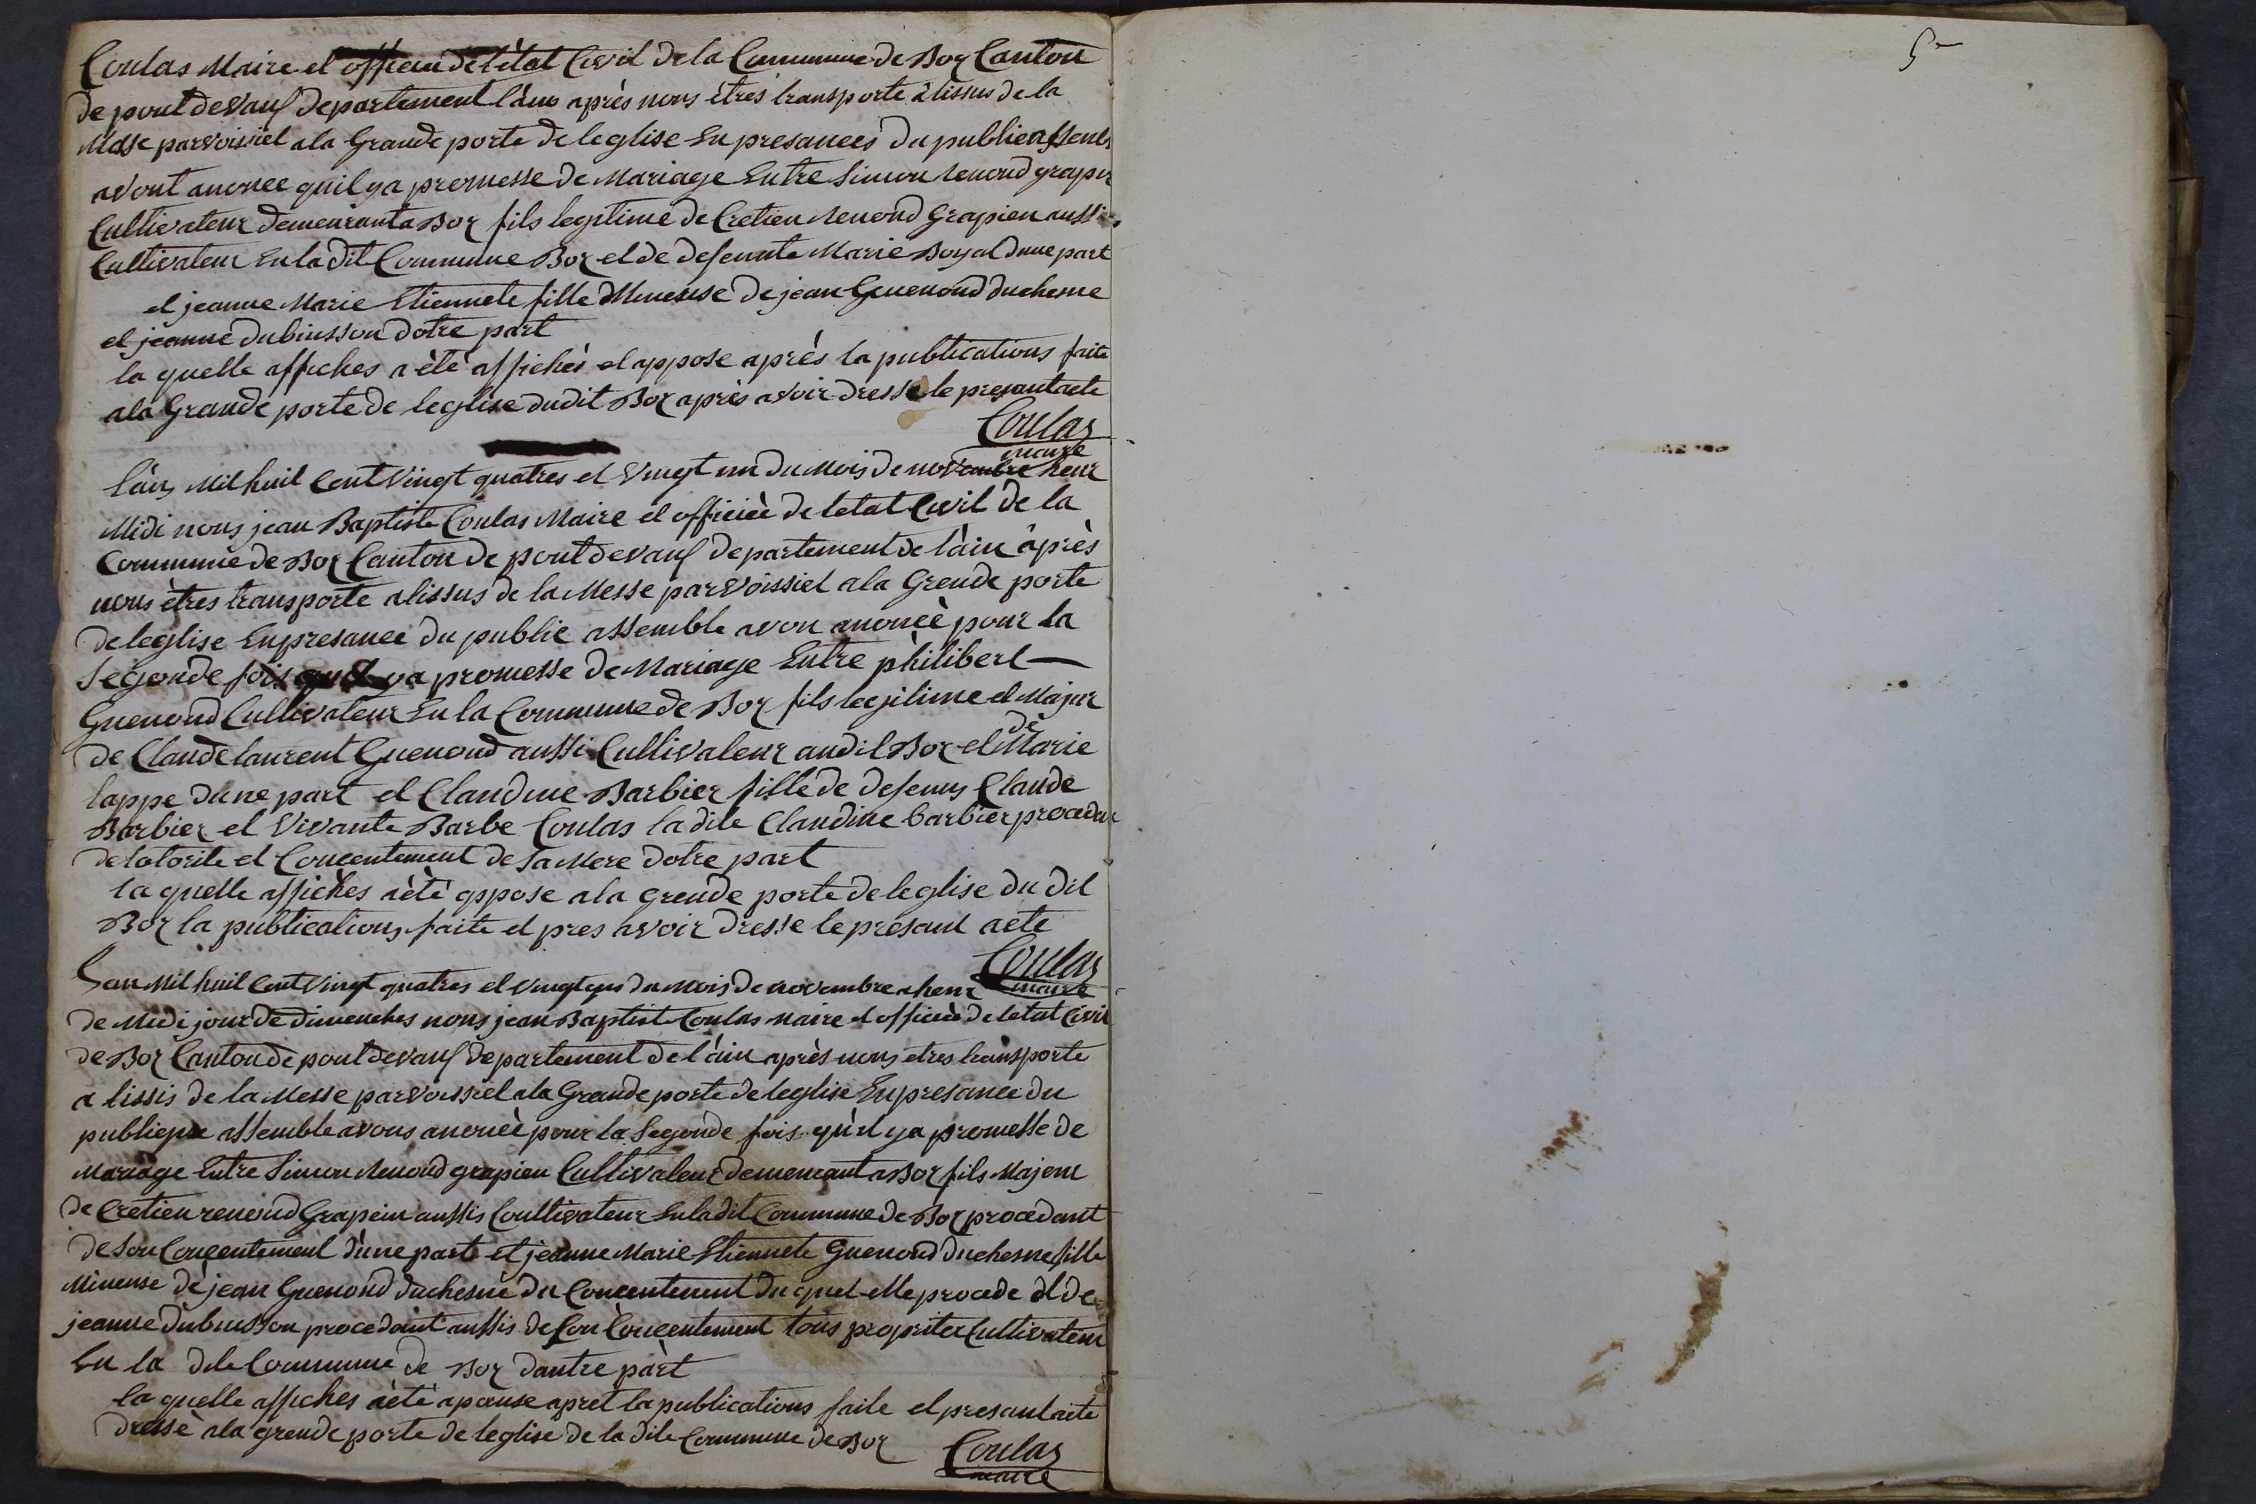 Coulas Maire et officier de l'état Civil de la Commune de Boz Canton
de pont devauf departement l'ain après nous êtres transporte à lissus de la
Masse parvoissiel a la Grande porte de leglise En presances du publie assenb
avont anonce quil ya promesse de Mariage Entre Simon Renoud grapin
Cultivateur demeurant a Boz fils legitime de Cretien Renoud Grapien aussi
Cultivateur En la dit Commune Boz et de defeunte Marie Boyat dune part
et jeanne Marie Etiennete fille Mineuse de jean Guenoud duchesne
et jeanne dubuisson dotre part
la quelle affiches a été affichés et appose après la publications faite
a la Grande porte de leglise dudit Boz après avoir dresse le presant acte
Coulas
maire
l'ain Mil huit Cent Vingt quatres et Vingt un du Mois de novembre heur
Midi nous jean Baptiste Coulas Maire et officiée de letat Civil de la
Commune de Boz Canton de pont devauf departement de l'ain après
nous êtres transporte a lissus de la Messe parvoissiel a la Grende porte
de leglise En presance du public assemble avon anonce pour la
Segonde fois quil ya promesse de Mariage Entre philibert
Guenoud Cultivateur En la Commune de Boz fils legitime et Majur
de
de Claude laurent Guenoud aussi Cultivateur audit Boz et Marie
lappe dune part et Claudine Barbier fille de defeuns Claude
Barbier et Vivante Barbe Coulas la dite Claudine barbier procedan
de latorite et Concentement de Sa Mere dotre part
la quelle affiches a été appose a la grende porte de leglise du dit
Boz la publications faite et pres avoir dresse le presant acte
Coulas
maire
Lan Mil huit Cent Vingt quatres et Vingt un du Mois de novembre a heur
de Midi jour de dimenches nous jean Baptist Coulas Maire et officiée de letat Civil
de Boz Canton de pont devauf departement de l'ain après nous etres transporte
a lissis de la Messe parvoissiel a la Grande porte de leglise En presance du
publique assemble avons anoncé pour la Segonde fois qu'il ya promesse de
Mariage Entre Simon Renoud grapien Cultivateur demeurant a Boz fils Majeur
de Cretien renoud Grapein aussis Coultivateur En la dit Commune de Boz procedant
de Son Concentement d'une parte et jeanne Marie Etiennete Guenoud duchesne fille
Mineuse de jean Guenoud duchesne du Concentement du quel elle procede et de
jeanne dubuisson procedant aussis de Son Concentement tous propriter Cultivateur
En la dite Commune de Boz dautre part
la quelle affiches a été apause apret la publications faite et presant acte
dressé a la grende porte de leglise de la dite Commune de Boz
Coulas
maire
5